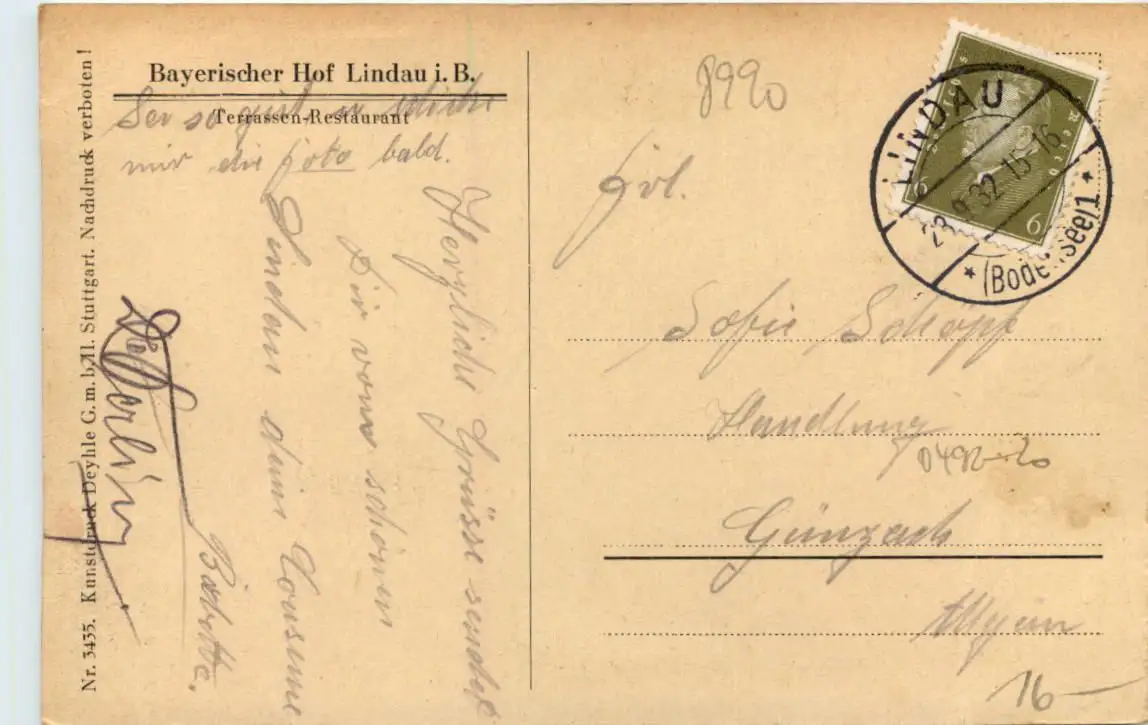 Bayerischer Hof Lindau i. B.
Terrassen-Restaurant
Sei so gut u. schicke
mir die foto bald.
Herzliche Grüsse sendet
Dir vom schönen
Lindau deine
Babette.
Nr. 3435. Kunstdruck Deyhle G. m. b. H. Stuttgart. Nachdruck verboten!
8990
Frl.
Sofie Schöpf
Handlung
0492-20
Günzach
Allgäu
16 —
LINDAU
28.9.32 15-16
* (Bodensee) 1 *
Deutsches Reich
6 6